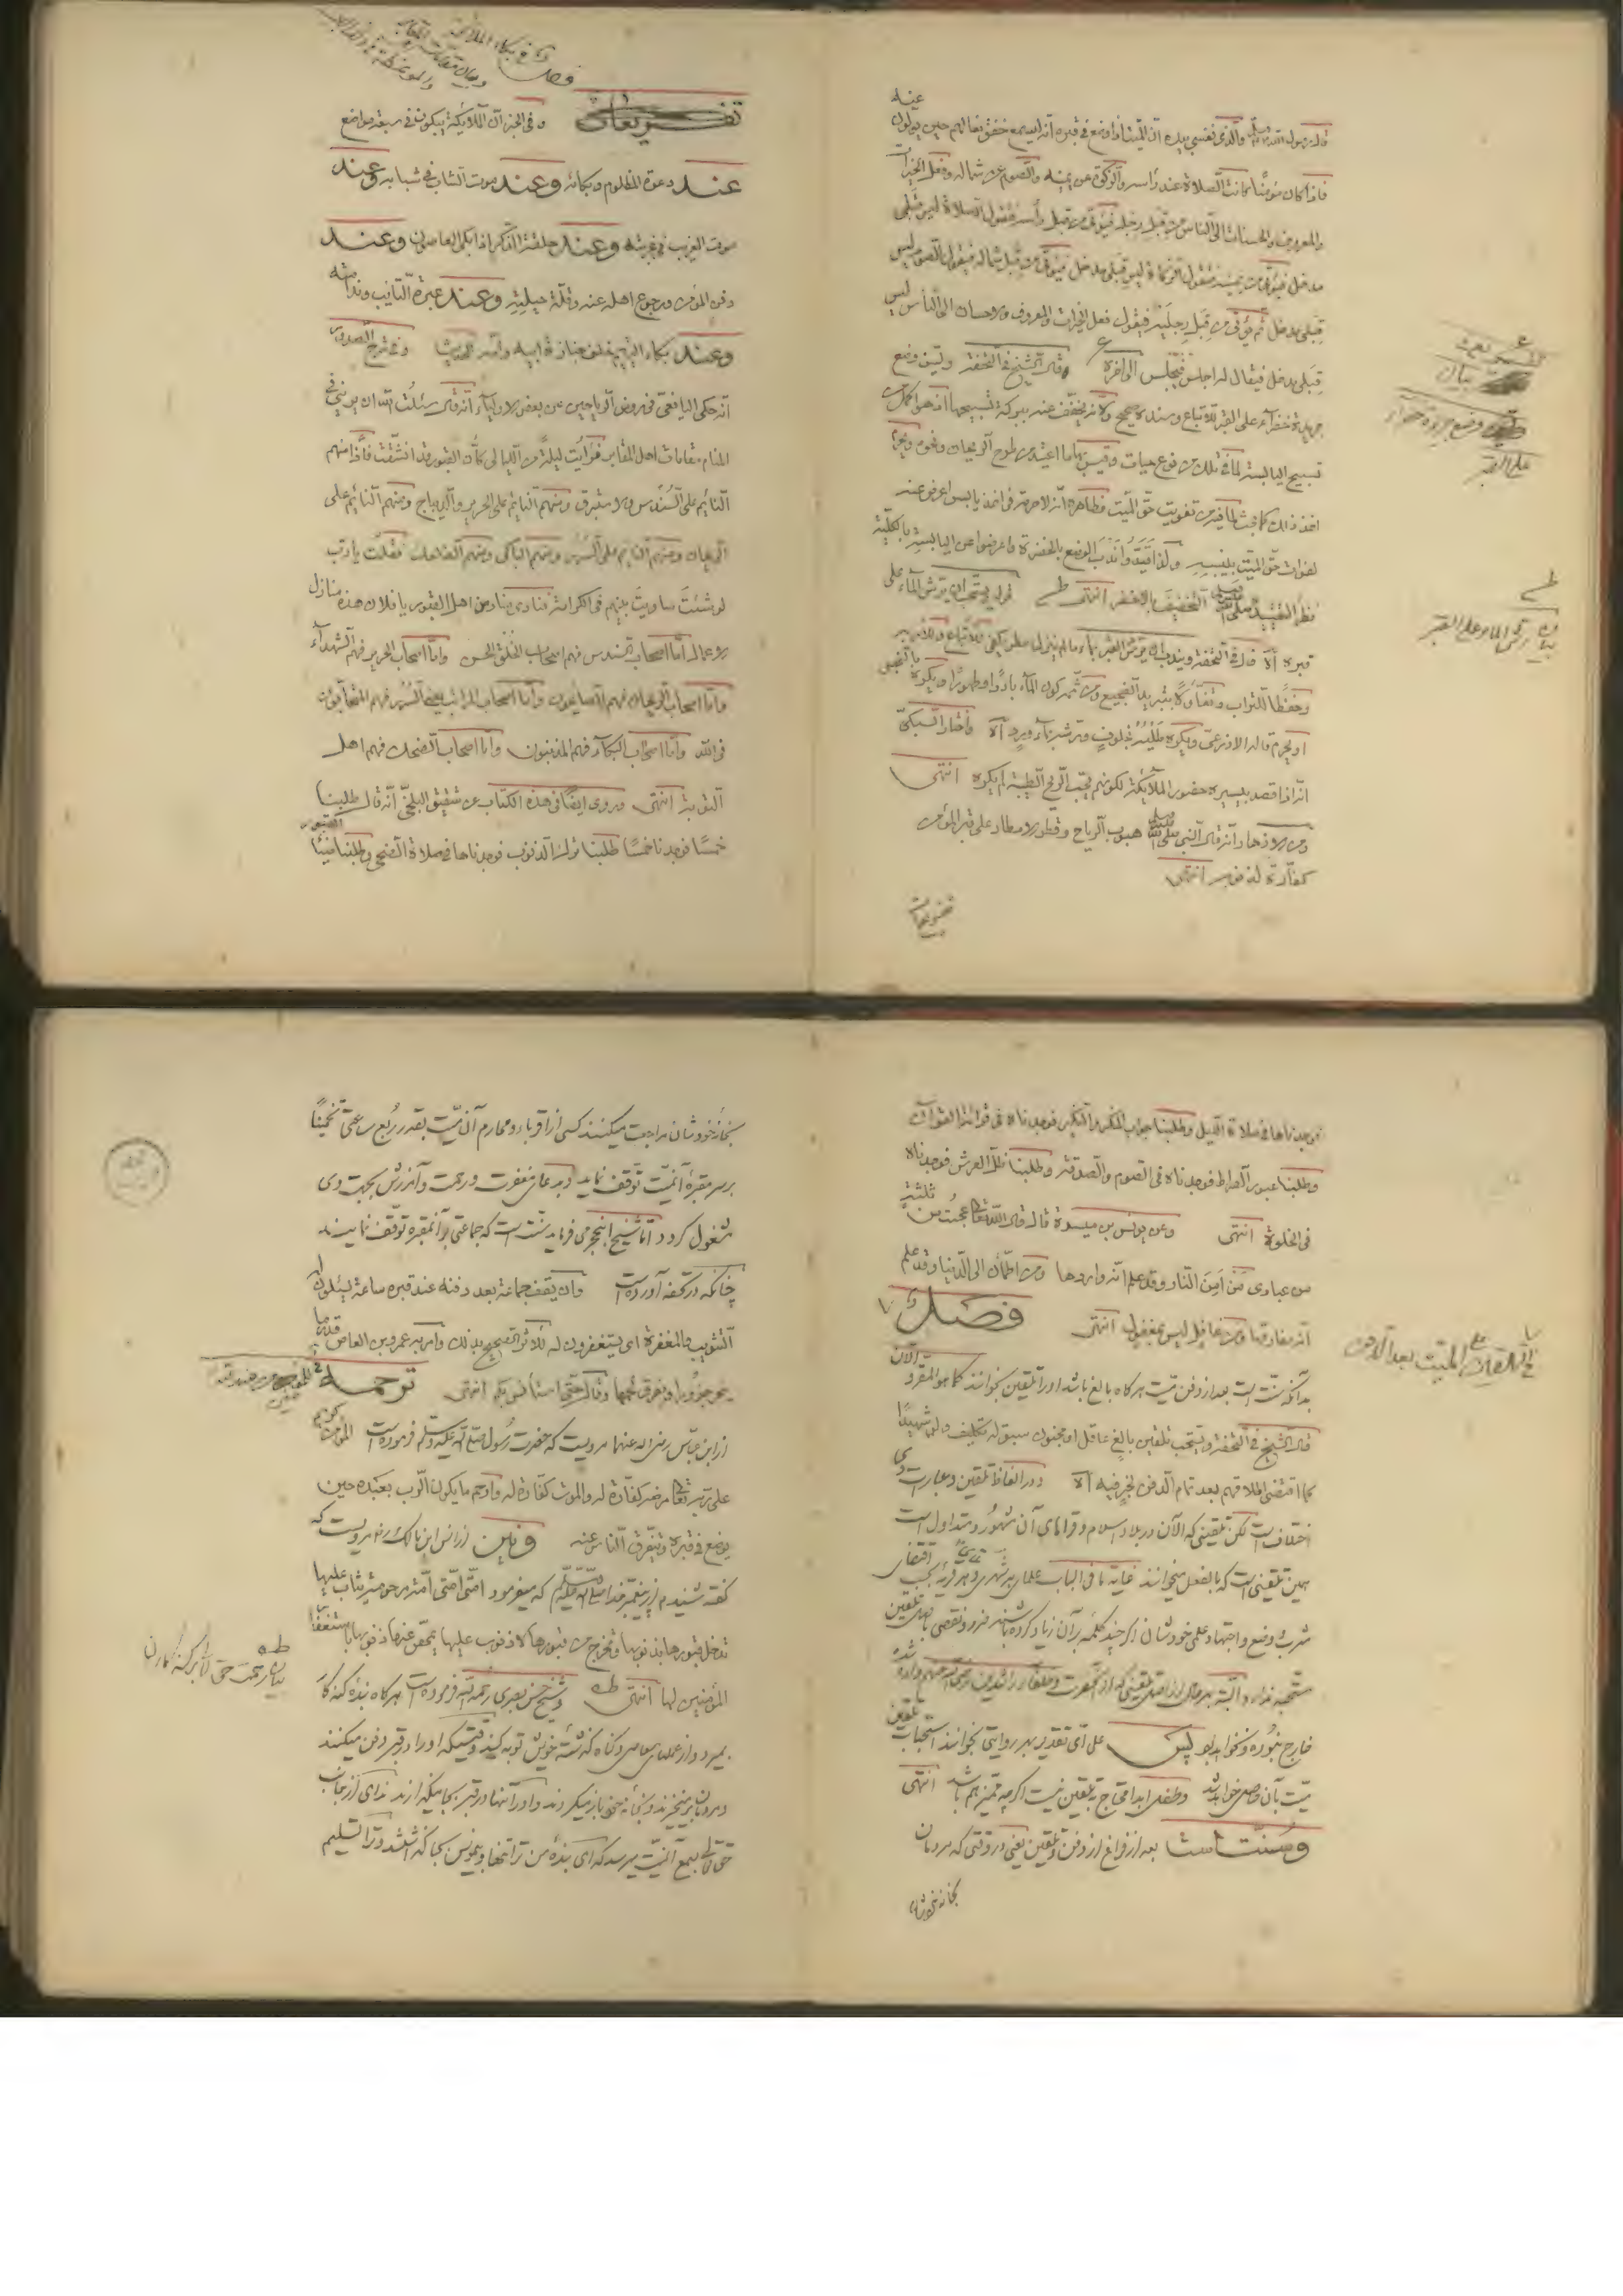 قال رسول الله والذى نفسي بيده ان الميت اذا وضع في قبره انه ليسمع خفق نعالهم حين يولون
عنه
فاذا كان مؤمنا كانت الصلاة عند رأسه والزكوة عن يمينه والصوم عن شماله وفعل الخيرات
والمعروف والحسنات الى الناس من قبل رجله فيؤتى من قبل رأسه فتقول الصلاة ليس قبلى
مدخل فيؤتى من يمينه فتقول الزكاة ليس قبلى مدخل فيؤتى من قبل شماله فيقول الصوم ليس
قبلى مدخل ثم يؤتى من قبل رجليه فيقول فعل الخيرات والمعروف والاحسان الى الناس ليس
قبلى مدخل فيقال له اجلس فيجلس الى اخره قال الشيخ في التحفة ويسن وضع
جريدة خضراء على القبر للاتباع وسنده صحيح ولانه يخفف عنه ببركة تسبيحها اذ هو اكمل من
تسبيح اليابسة لما في تلك من نوع حيات وقيس بها ما اعتيد من طرح الريحان ونحوه ويحرم
اخذ ذلك كما بحث لما فيه من تفويت حق الميت فظاهره انه لا حرمة في اخذ يابس اعرض عنه
لفوات حق الميت بيبسه ولذا قيد وا ندب الوضع بالخضرة واعرضوا عن اليابسة بالكلية
نظرا لتقييد صلى الله التخفيف بالاخضر انتهى
قبره اه قال في التحفة ويندب ان يرش القبر بماء ما لم ينزل مطر يكفي للاتباع وللامر به
وحفظا للتراب وتفاؤلا بتبريد المضجع ومن ثم كون الماء باردا وطهورا ويكره بالنجس
او يحرم قاله الاذرعى ويكره طليه بخلوف ورشه بماء ورد اه واختار السبكى
انه اذا قصد بيسيره حضور الملائكة لكونهم تحب الريح الطيبة لم يكره انتهى
انه قال النبي صلى الله هبوب الرياح وقطور الامطار على قبر المؤمن
كفارة لذنوبه انتهى
تفريعات
بيان
وضع جريدة خضراء
على القبر
بيان رش الماء على القبر
فصل في بكاء الملائكة
تفريعات
و في الخبر ان الملائكة يبكون في سبعة مواضع
عند دعوة المظلوم وبكائه وعند موت الشاب في شبابه وعند
موت الغريب في غربته وعند حلقة الذكر اذا بكى العاصون وعند
دفن المؤمن ورجوع اهله عنه وقلة حيلته وعند عبرة التائب وندامته
وعند بكاء اليتيم خلف جنازة ابيه وامه وفي شرح الصدور
انه حكى اليافعى في روض الرياحين عن بعض الاولياء انه قال سئلت الله ان يرينى في
المنام مقامات اهل المقابر فرأيت ليلة من الليالى كأن القبور قد انشقت فاذا منهم
النائم على السندس والاستبرق ومنهم النائم على الحرير والديباج ومنهم النائم على
الريحان ومنهم النائم على السرر ومنهم الباكى ومنهم الضاحك فقلت يا رب
لو شئت ساويت بينهم في الكرامة فنادى مناد من اهل القبور يا فلان هذه منازل
الاعمال اما اصحاب السندس فهم اصحاب الخلق الحسن واما اصحاب الحرير فهم الشهداء
واما اصحاب الريحان فهم الصايمون واما اصحاب السرر فهم المتحابون
فى الله واما اصحاب البكاء فهم المذنبون واما اصحاب الضحك فهم اهل
التوبة انتهى وروى ايضا في هذه الكتاب عن شقيق البلخى انه قال طلبنا
خمسا فوجدنا خمسا طلبنا ترك الذنوب فوجدناها في صلاة الضحى وطلبنا ضياء القبور
فوجدناها في صلاة الليل وطلبنا جواب المنكر والنكير فوجدناه في قرائة القرآن
وطلبنا عبور الصراط فوجدناه في الصوم والصدقة وطلبنا ظل العرش فوجدناه
فى الخلوة انتهى وعن يونس بن ميسرة قال قال الله تعالى عجبت من ثلثة
من عبادى من امن النار وقد علم انه واردها ومن اطمأن الى الدنيا وقد علم
انه مفارقها ومن غافل ليس بمغفول انتهى فصل
بدانكه سنت است بعد از دفن ميت هر كاه بالغ باشد او را تلقين بخوانند كما هو المقرر الآن
قال الشيخ في التحفة ويستحب تلقين بالغ عاقل او مجنون سبق له تكليف ولو شهيدا
كما اقتضى اطلاقهم بعد تمام الدفن لخبر فيه اه ودر الفاظ تلقين وعبارت وى
اختلاف است لكن تلقينى كه الآن در بلاد اسلام وقراهاى آن مشهور ومتداول است
همين تلقينى است كه بالفعل ميخوانند غاية ما في الباب علماى هر شهرى وهر قريه بحسب اقتضاى
مشرب ووضع واجتهاد علمى خودشان اگر چند كلمه بر آن زياد كرده باشند ضرر ونقصى باصل تلقين
خارج نبوده ونخواهد بود پس على اى تقدير بهر روايتى بخوانند استحباب تلقين
ميت بآن حاصل خواهد شد وطفل ابدا محتاج تلقين نيست اگرچه مميز هم باشد انتهى
وسنت است بعد از فراغ از دفن وتلقين يعنى در وقتى كه مردمان
بخانه خودشان
تلقين الميت بعد الدفن
بخانه خودشان مراجعت ميكنند كسى از اقرباء ومحارم آن ميت بقدر ربع ساعتى تخمينا
بر سر مقبرۀ آنميت توقف نمايد وبدعاى مغفرت ورحمت وآمرزش بجهت وى
مشغول گردد اما شيخ ابن حجر مى فرمايد سنت است كه جماعتى بر آنمقبره توقف نمايند
چنانكه در تحفه آورده است وان يقف جماعة بعد دفنه عند قبره ساعة يسئلون له
التثبيت والمغفرة اى يستغفرون له للاتباع الصحيح بذلك وامر به عمرو بن العاص
وقال حتى استأنس بكم انتهى ترجمه
از ابن عباس رضى الله عنهما مرويست كه حضرت رسول صلى الله عليه وسلم فرموده است المؤمن كريم
على ربه تعالى مرضه كفارة له والموت كفارة له وارحم ما يكون الرب بعبده حين
يوضع في قبره ويتفرق الناس عنه وأيضا از انس ابن مالك مرويست كه
گفت شنيدم از پيغمبر خدا صلى الله عليه وسلم كه ميفرمود امتى امتى امة مرحومة متاب عليها
تدخل قبورها بذنوبها وتخرج من قبورها لا ذنوب عليها يمحق عنها ذنوبها باستغفار
المؤمنين لها انتهى وشيخ حسن بصرى رحمه الله فرموده است هر گاه بندۀ گنه كار
بميرد واز عملهاى معاصى وگناه گذشتۀ خويش توبه كند وقتيكه او را در قبر دفن ميكنند
ومردمان برميخيزند وبخانه خود باز ميگردند واو را تنها در قبر بجا ميگذارند نداى از جانب
حق تعالى بسمع آنميت ميرسد كه اى بندۀ من ترا تنها وبى مونس بجا گذاشتند وترا تسليم
بيان رحمت حق تعالى بر گنه كاران